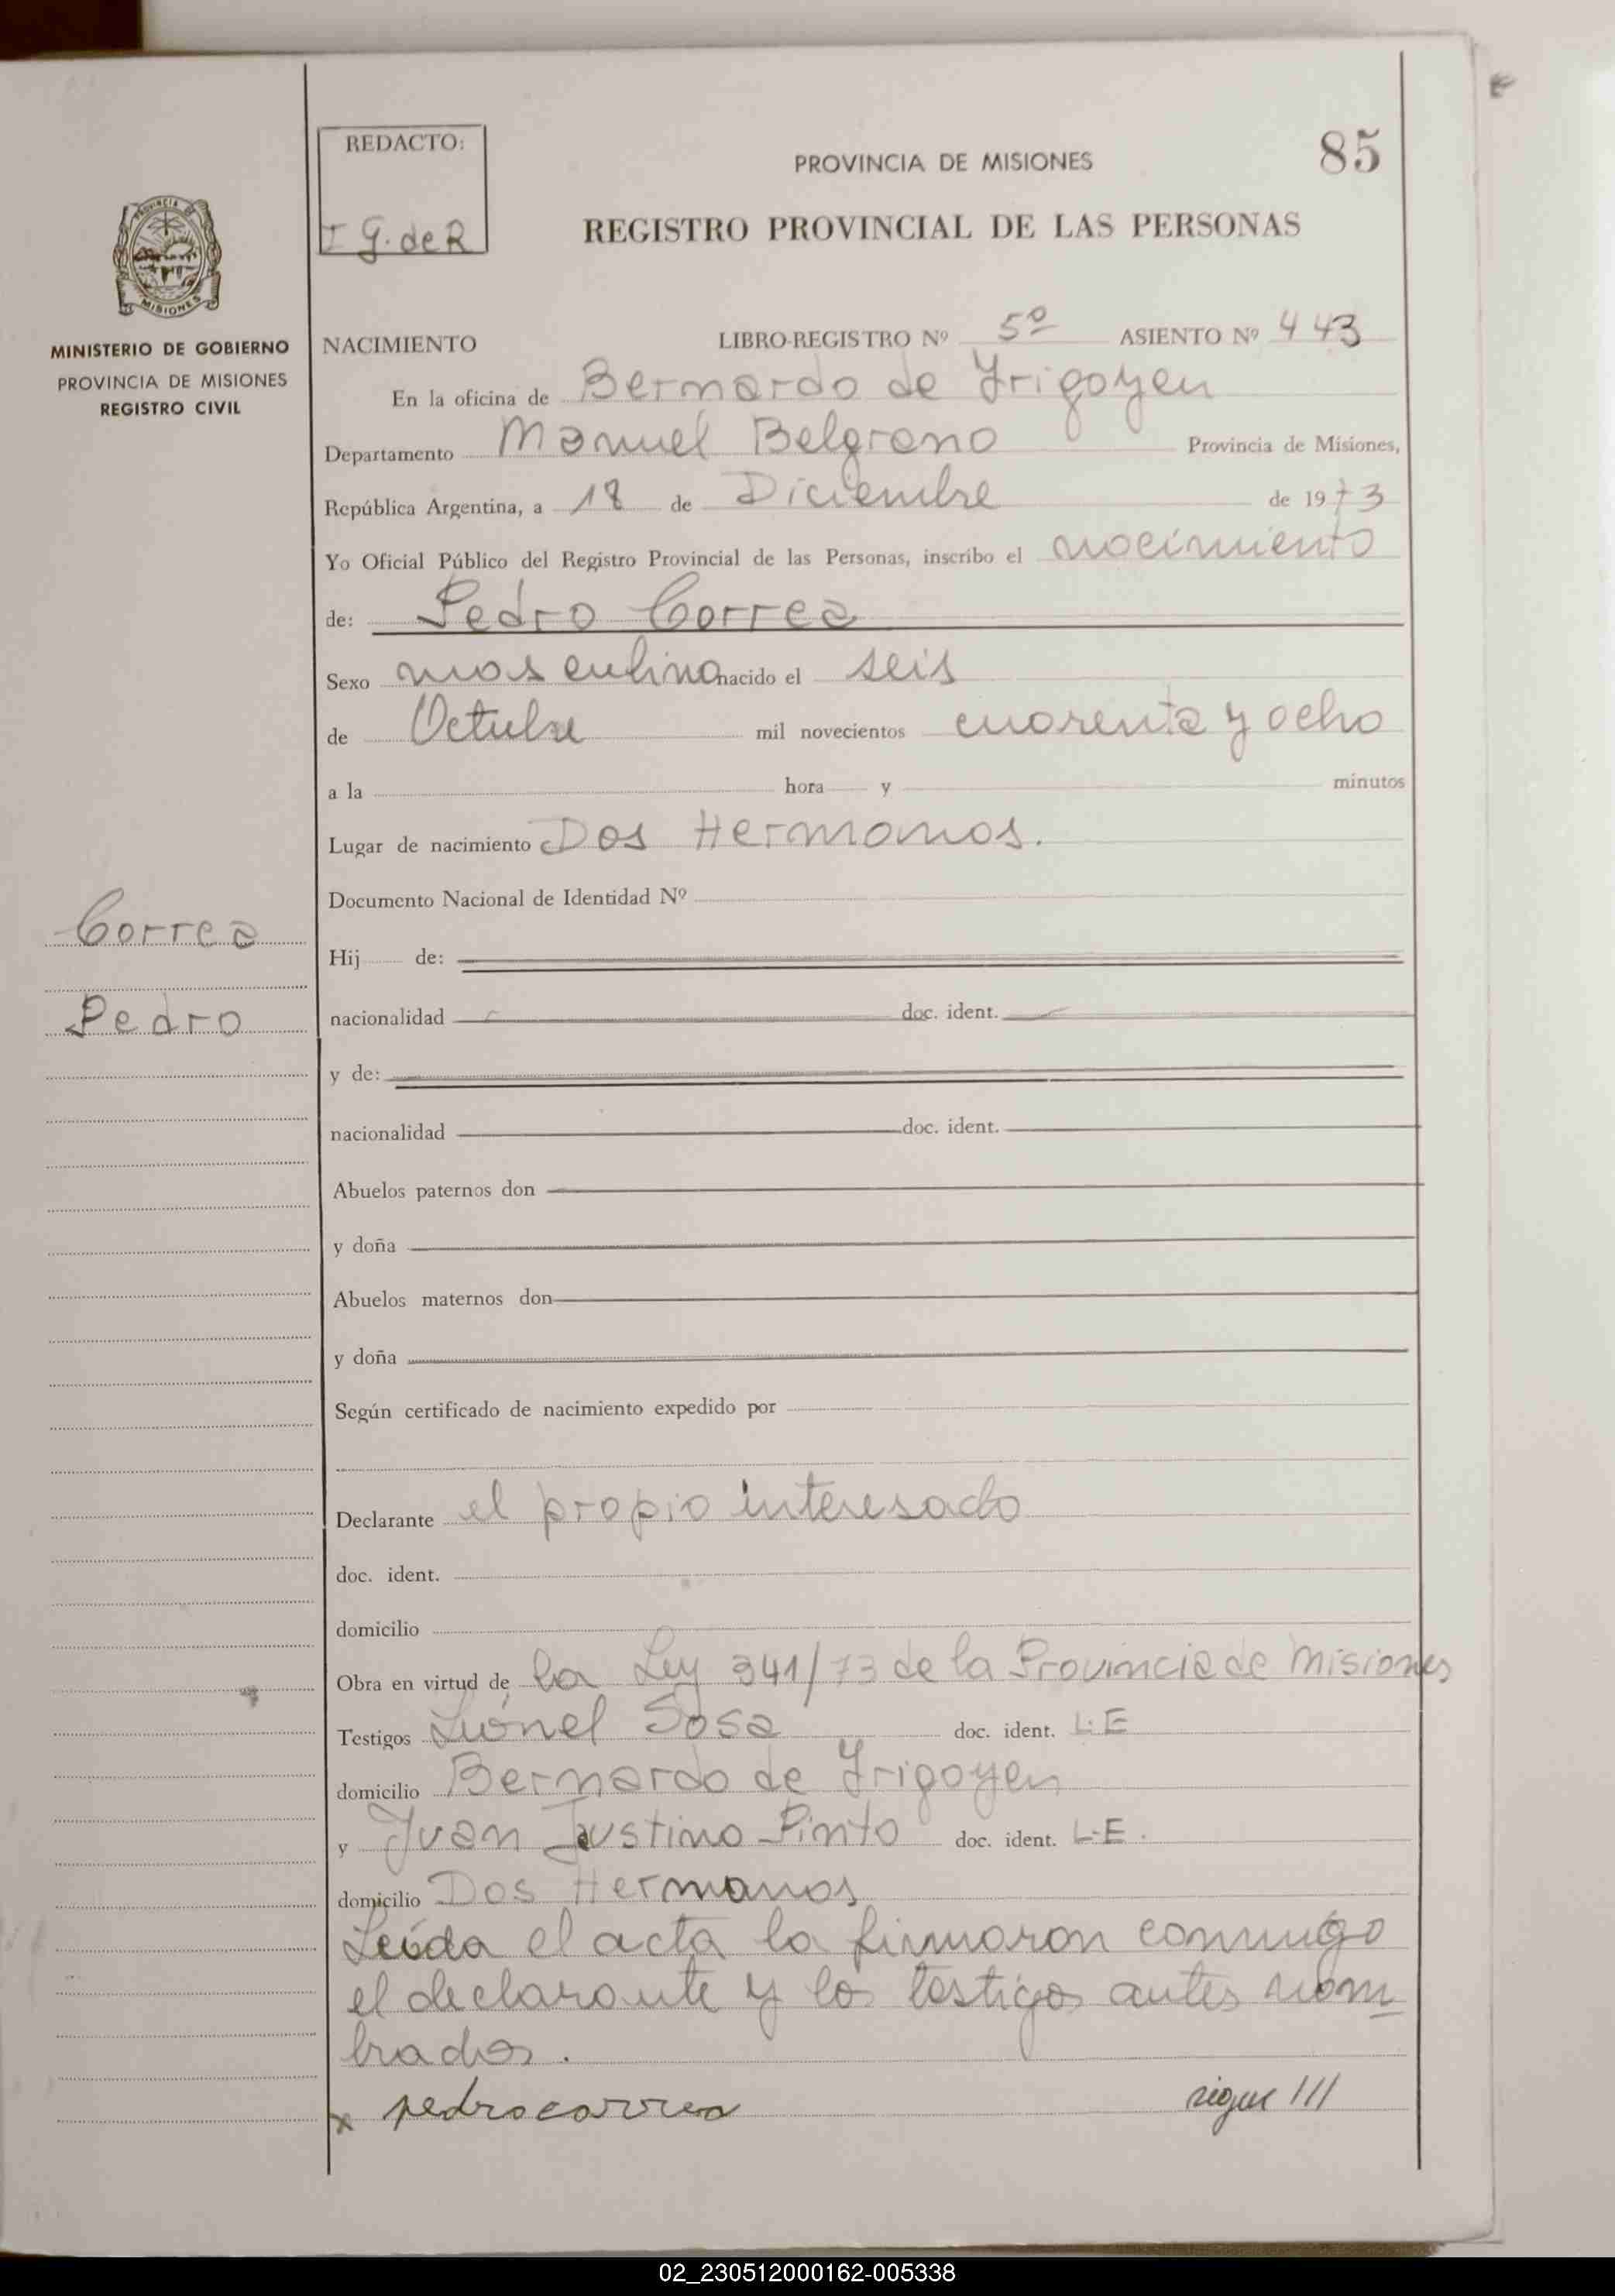 REDACTO:
I G. de R
85
PROVINCIA DE MISIONES
REGISTRO PROVINCIAL DE LAS PERSONAS
PROVINCIA DE
MISIONES
MINISTERIO DE GOBIERNO
PROVINCIA DE MISIONES
REGISTRO CIVIL
NACIMIENTO LIBRO-REGISTRO Nº 5º ASIENTO Nº 443
En la oficina de Bernardo de Yrigoyen
Departamento Manuel Belgrano Provincia de Misiones,
República Argentina, a 18 de Diciembre de 1973
Yo Oficial Público del Registro Provincial de las Personas, inscribo el nacimiento
de: Pedro Correa
Sexo masculino nacido el seis
de Octubre mil novecientos cuarenta y ocho
a la hora y minutos
Lugar de nacimiento Dos Hermanos.
Documento Nacional de Identidad Nº
Correa
Hij de:
Pedro
nacionalidad doc. ident.
y de:
nacionalidad doc. ident.
Abuelos paternos don
y doña
Abuelos maternos don
y doña
Según certificado de nacimiento expedido por
Declarante el propio interesado
doc. ident.
domicilio
Obra en virtud de la Ley 341/73 de la Provincia de Misiones
Testigos Liónel Sosa doc. ident. L.E
domicilio Bernardo de Yrigoyen
y Juan Justino Pinto doc. ident. L-E.
domicilio Dos Hermanos
Leída el acta la firmaron conmigo
el declarante y los testigos antes nom
brados.
x pedro correa sigue ///
02_230512000162-005338